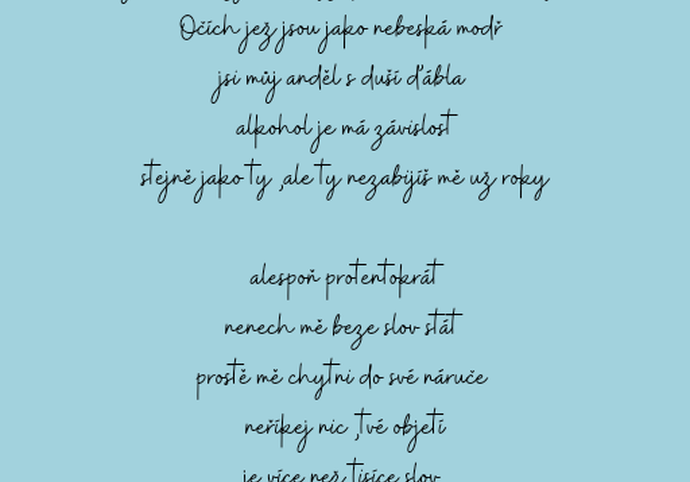 Očích jež jsou jako nebeská modř
jsi můj anděl s duší ďábla
alkohol je má závislost
stejně jako ty ,ale ty nezabíjíš mě už roky
alespoň protentokrát
nenech mě beze slov stát
prostě mě chytni do své náruče
neříkej nic ,tvé objetí
je více než tisíce slov